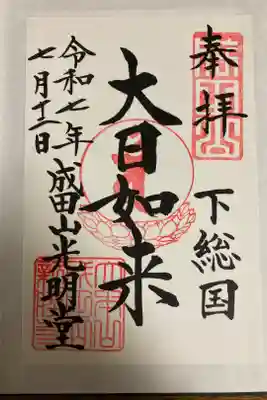 奉拝
下総国
大日如来
成田山光明堂
令和七年
七月十二日